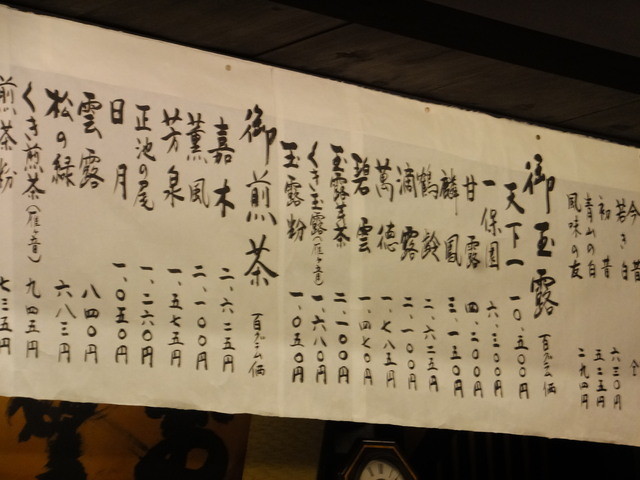 今昔
若き白
初昔 六三〇円
青山の白 五二五円
風味の友 二九四円
御玉露 百グラム価
天下一 一〇、五〇〇円
一保園 六、三〇〇円
甘露 四、二〇〇円
麟鳳 三、一五〇円
鶴齢 二、六二五円
滴露 二、一〇〇円
萬徳 一、七八五円
碧雲 一、四七〇円
玉露芽茶 二、一〇〇円
くき玉露(雁ヶ音) 一、六八〇円
玉露粉 一、〇五〇円
御煎茶 百グラム価
嘉木 二、六二五円
薫風 二、一〇〇円
芳泉 一、五七五円
正池の尾 一、二六〇円
日月 一、〇五〇円
雲露 八四〇円
松の緑 六八三円
くき煎茶(雁ヶ音) 九四五円
煎茶粉 七三五円